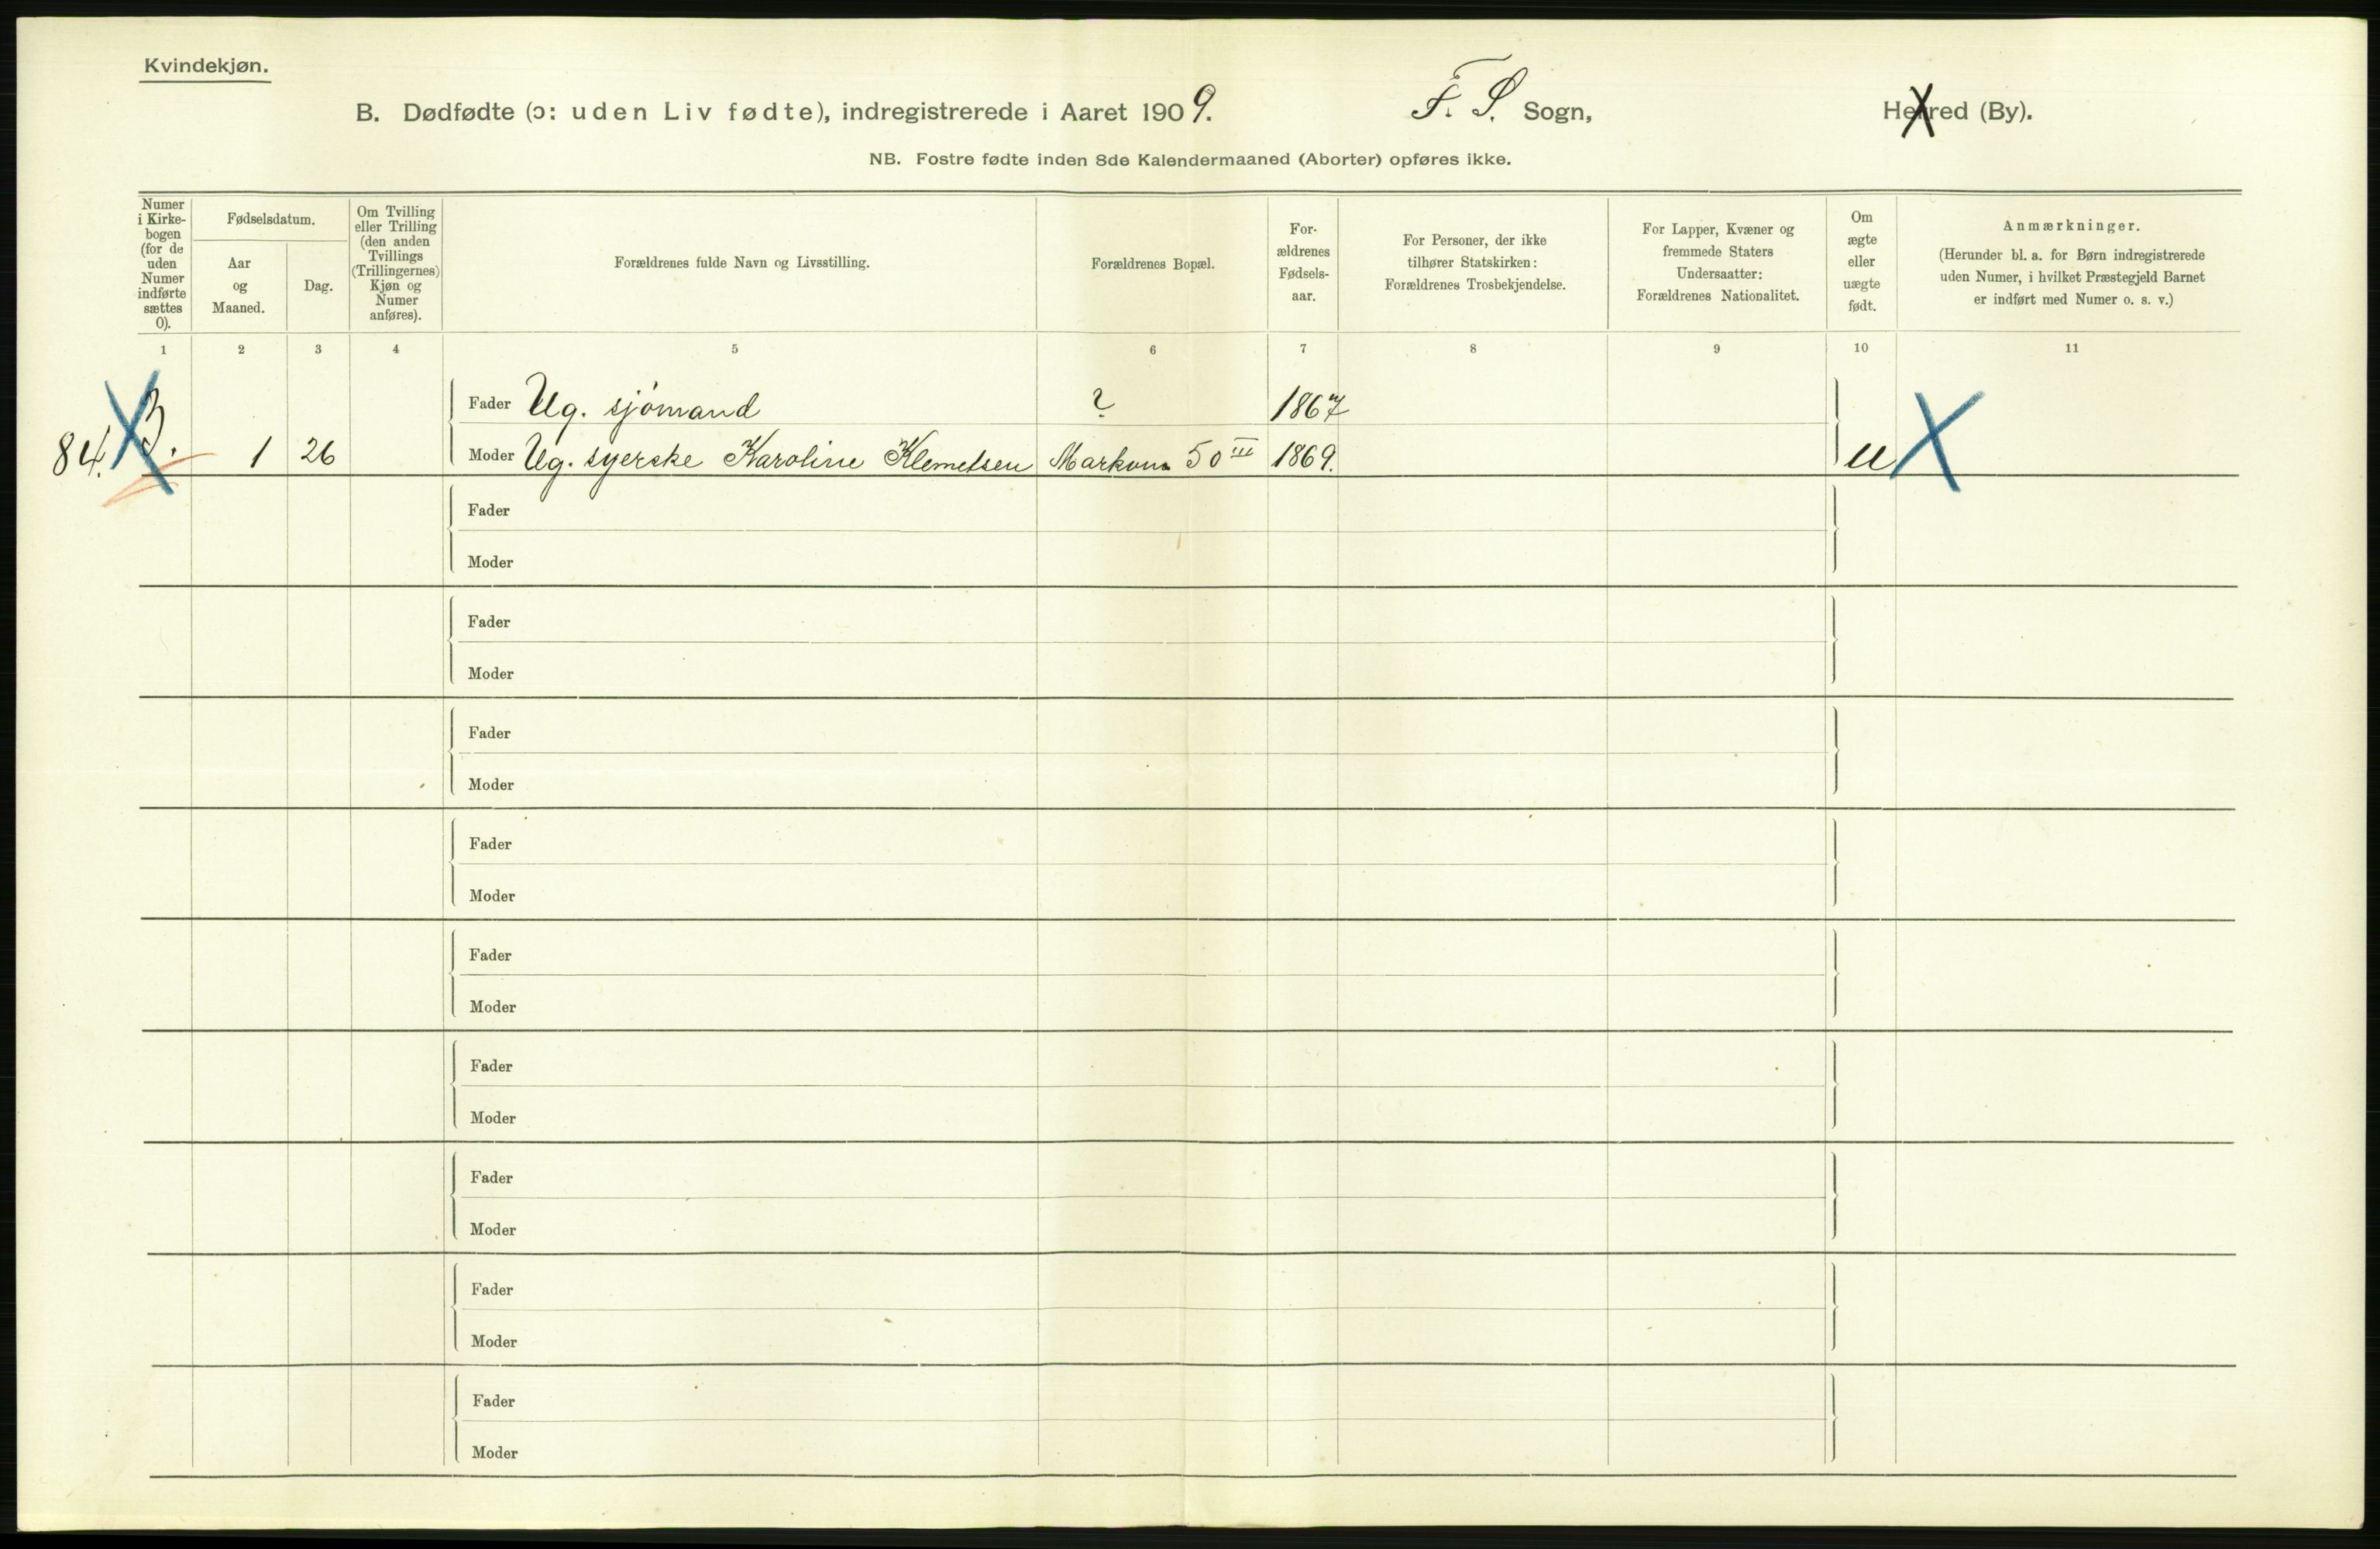 Kvindekjøn.
B. Dødfødte (ɔ: uden Liv fødte), indregistrerede i Aaret 1909. F. S. Sogn, Herred (By).
NB. Fostre fødte inden 8de Kalendermaaned (Aborter) opføres ikke.
Numer
i Kirke-
bogen
(for de
uden
Numer
indførte
sættes
0).
Fødselsdatum.
Aar
og
Maaned.
Dag.
Om Tvilling
eller Trilling
(den anden
Tvillings
(Trillingernes)
Kjøn og
Numer
anføres).
Forældrenes fulde Navn og Livsstilling.
Forældrenes Bopæl.
For-
ældrenes
Fødsels-
aar.
For Personer, der ikke
tilhører Statskirken:
Forældrenes Trosbekjendelse.
For Lapper, Kvæner og
fremmede Staters
Undersaatter:
Forældrenes Nationalitet.
Om
ægte
eller
uægte
født.
Anmærkninger.
(Herunder bl. a. for Børn indregistrerede
uden Numer, i hvilket Præstegjeld Barnet
er indført med Numer o. s. v.)
1 2 3 4 5 6 7 8 9 10 11
Fader Ug. sjömand ? 1867
84. 3. 1 26 Moder Ug. syerske Karoline Klemetsen Markvn 50 III 1869. u
Fader
Moder
Fader
Moder
Fader
Moder
Fader
Moder
Fader
Moder
Fader
Moder
Fader
Moder
Fader
Moder
Fader
Moder